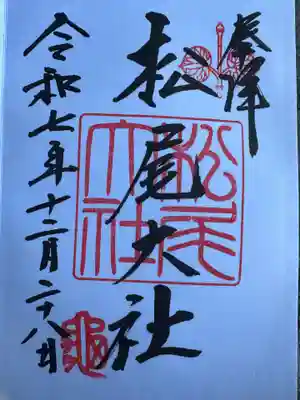 奉拝
松尾大社
松尾大社
令和七年十二月二十八日
亀